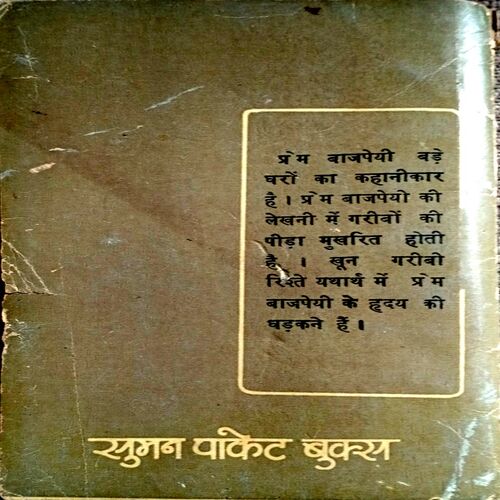 प्रेम बाजपेयी बड़े
घरों का कहानीकार
है । प्रेम बाजपेयी की
लेखनी में गरीबों की
पीड़ा मुखरित होती
है । खून गरीबी
रिश्ते यथार्थ में प्रेम
बाजपेयी के हृदय की
धड़कने हैं ।
सुमन पाकेट बुक्स